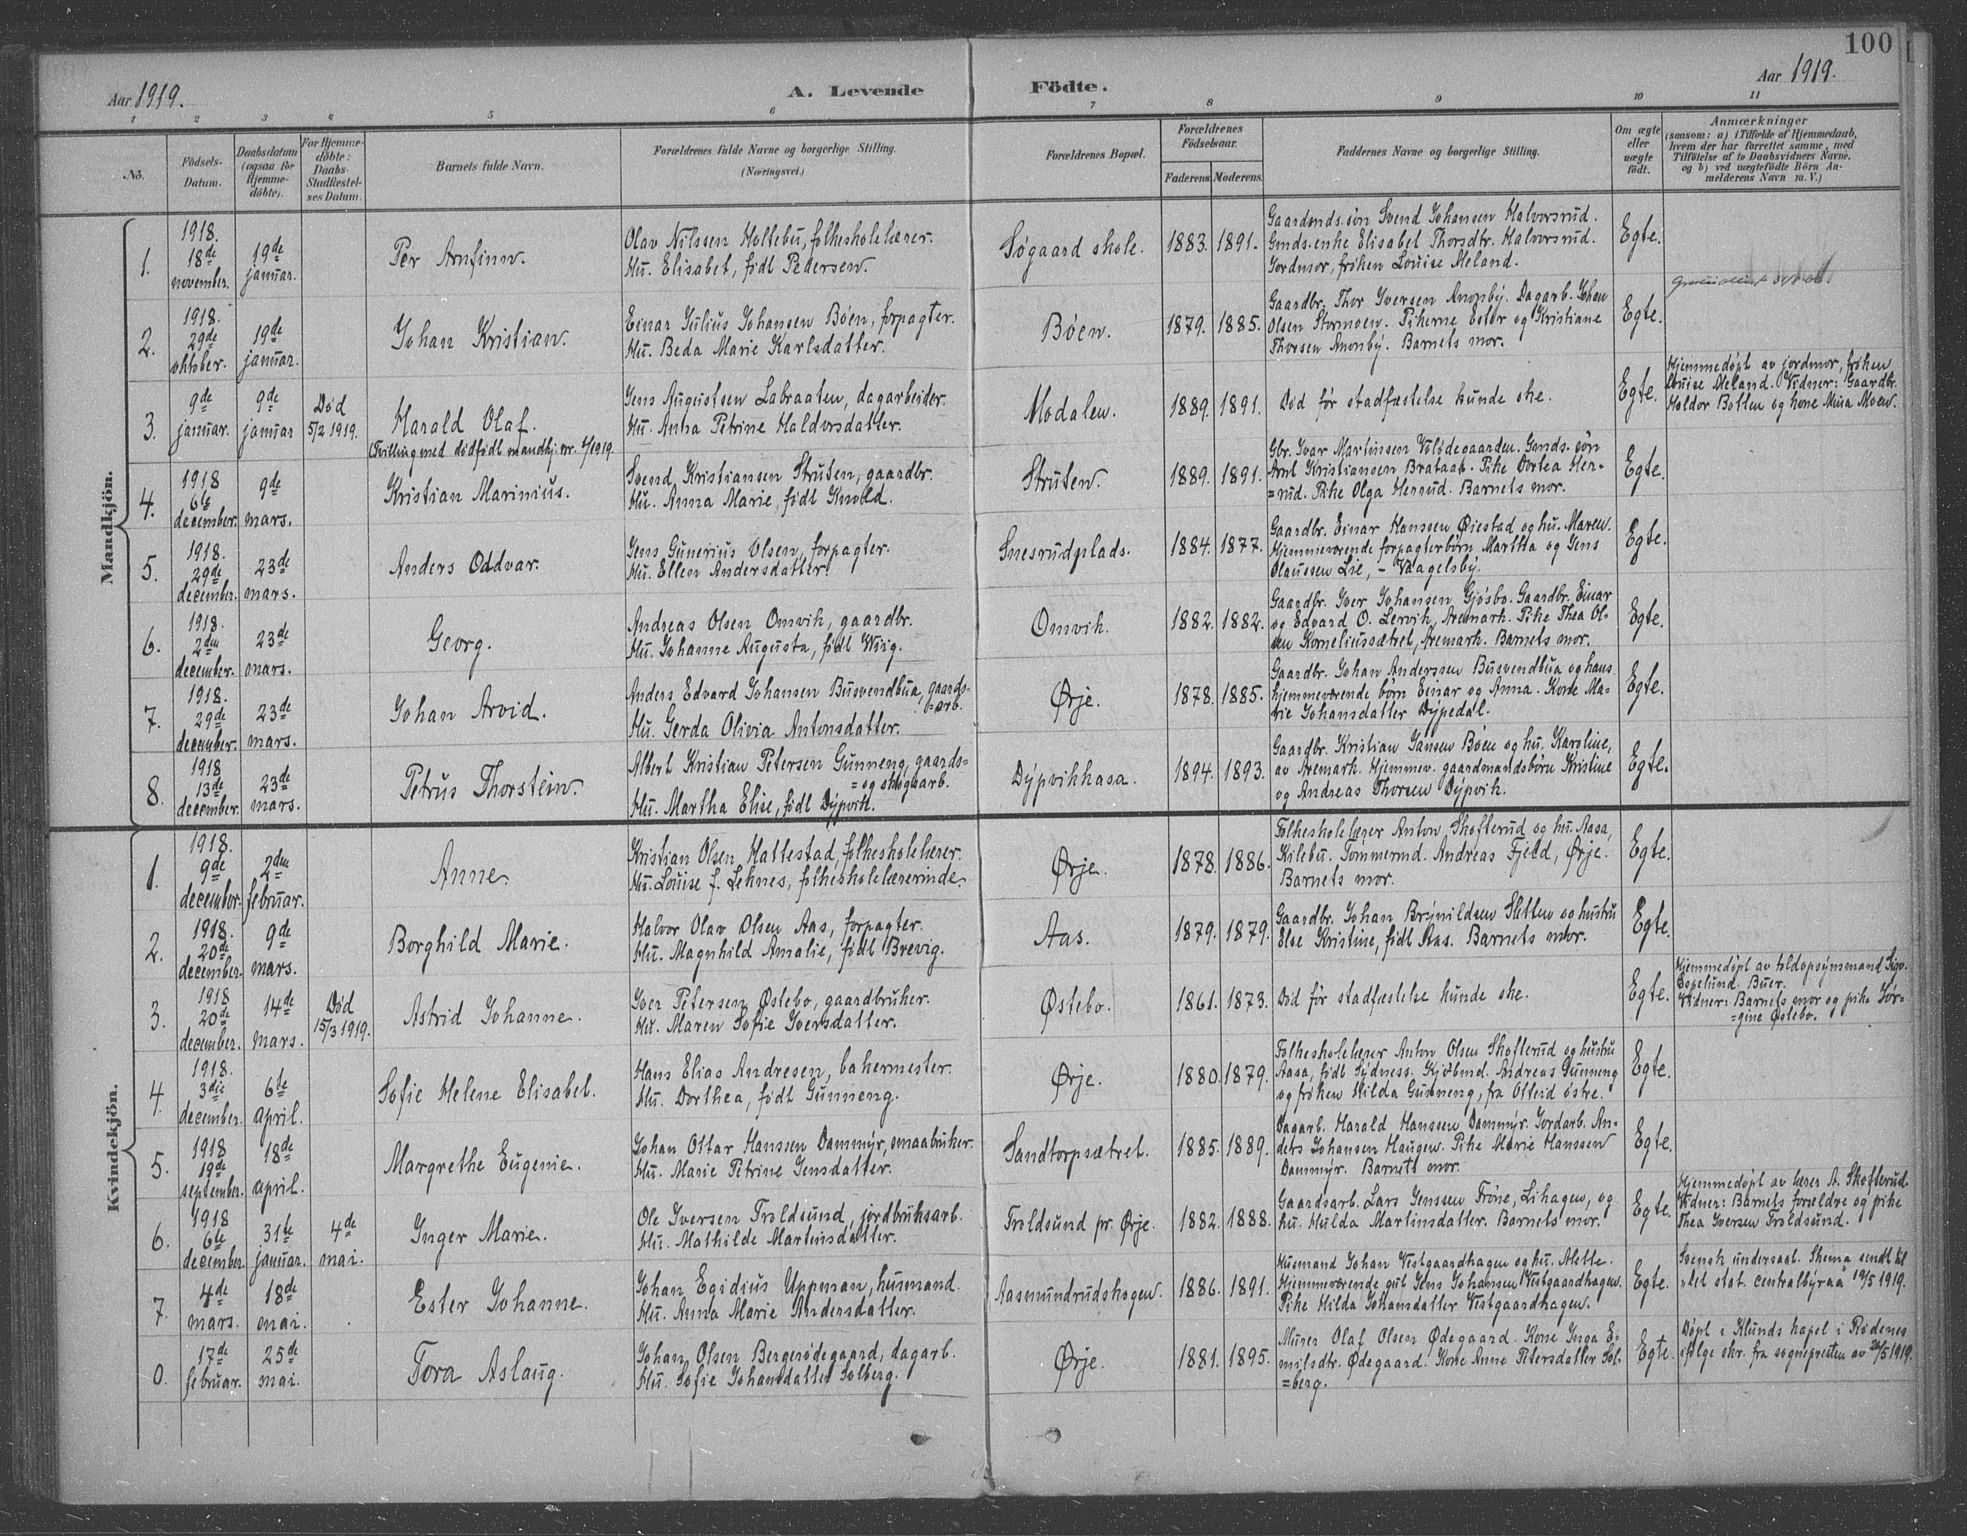 100
Aar 1919.
A. Levende Födte.
Aar 1919.
1 2 3 4 5 6 7 8 9 10 11
No.
Födsels-Datum.
Daabsdatum (ogsaa för Hjemmedöbte).
For Hjemmedöbte: Daabs-Stadfæstelses Datum.
Barnets fulde Navn.
Forældrenes fulde Navne og borgerlige Stilling.
(Næringsvei.)
Forældrenes Bopæl.
Forældrenes Födselsaar.
Faderens. Moderens.
Faddernes Navne og borgerlige Stilling.
Om ægte eller uægte födt.
Anmærkninger
(saasom: a) i Tilfælde af Hjemmedaab, hvem der har forrettet samme, med Tilföielse af to Daabsvidners Navne, og b) ved uægtefödte Börn Anmelderens Navn m. V.)
Mandkjön.
1.
1918. 18de november.
19de januar.
Per Arnfinn.
Olav Nilssen Holtebu, folkeskolelærer.
Hu. Elisabet, født Pedersen.
Søgaard skole.
1883. 1891.
Gaardmds. søn Svend Johansen Halvorsrud.
Gmds. enke Elisabet Thorsdtr. Halvorsrud.
Jordmor, frøken Louise Meland.
Egte.
2.
1918. 29de oktober.
19de januar.
Johan Kristian.
Einar Julius Johansen Bøen, forpagter.
Hu. Beda Marie Karlsdatter.
Bøen.
1879. 1885.
Gaardbr. Thor Iversen Anonby. Dagarb. Johan
Olsen Stormoen. Pikerne Ester og Kristiane
Thorsen Anonby. Barnets mor.
Egte.
3.
9de januar.
9de januar
Død 5/2 1919.
Harald Olaf.
(Tvilling med dødfødt mandkj. nr. 1/1919.
Jens Augustsen Labraaten, dagarbeider.
Hu. Anna Petrine Haldorsdatter.
Modalen.
1889. 1891.
Død før stadfæstelse kunde ske.
Egte.
Hjemmedøpt av jordmor, frøken
Louise Meland. Vidner: Gaardbr.
Haldor Botten og kone Mina Moen.
4.
1918 6te december.
9de mars.
Kristian Marinius.
Svend Kristiansen Struten, gaardbr.
Hu. Anna Marie, født Knold.
Struten.
1889. 1891.
Gbr. Ivar Martinsen Vilødegaarden. Gmds. søn
Arnt Kristiansen Brataas. Pike Dortea Her-
=nud. Pike Olga Hernud. Barnets mor.
Egte.
5.
1918. 29de december.
23de mars.
Anders Oddvar.
Jens Gunerius Olsen, forpagter.
Hu. Ellen Andersdatter.
Snesrudplads.
1884. 1877.
Gaardbr. Einar Hanssen Øiestad og hu. Maren.
Hjemmeværende forpagterbørn Martha og Jens
Olaussen Lie, – Vagelsby.
Egte.
6.
1918. 2den december.
23de mars.
Georg.
Andreas Olsen Omvik, gaardbr.
Hu. Johanne Augusta, født Wiig.
Omvik.
1882. 1882.
Gaardbr. Iver Johansen Gjøsbo. Gaardbr. Einar
og Edvard O. Lervik, Aremark. Pike Thea Ol-
sen Korneliussætret, Aremark. Barnets mor.
Egte.
7.
1918. 29de december.
23de mars.
Johan Arvid.
Anders Edvard Johansen Busvendbua, gaards-
=arb.
Hu. Gerda Olivia Antonsdatter.
Ørje.
1878. 1885.
Gaardbr. Johan Anderssen Busvendbua og hans
hjemmeværende børn Einar og Anna. Kone Ma-
rie Johansdatter Dypedal.
Egte.
8.
1918 13de december.
23de mars.
Petrus Thorstein.
Albert Kristian Petersen Gunneng, gaards-
= og skogsarb.
Hu. Martha Elise, født Dypvik.
Dypvikhasa.
1894. 1893.
Gaardbr. Kristian Jansen Bøen og hu. Karoline,
av Aremark. Hjemmev. gaardmandsbørn Kristine
og Andreas Thorsen Dypvik.
Egte.
Kvindekjön.
1.
1918. 9de december.
2den februar.
Anne.
Kristian Olsen Hattestad, folkeskolelærer.
Hu. Louise f. Leknes, folkeskolelærerinde.
Ørje.
1878. 1886.
Folkeskolelærer Anton Skofterud og hu. Aasa,
Kilebu. Tømmermd. Andreas Fjeld, Ørje.
Barnets mor.
Egte.
2.
1918. 20de december.
9de mars.
Borghild Marie.
Halvor Olav Olsen Aas, forpagter.
Hu. Magnhild Amalie, født Brevig.
Aas.
1879. 1879.
Gaardbr. Johan Brynildsen Sletten og hustru
Else Kristine, født Aas. Barnets mor.
Egte.
3.
1918 20de december.
14de mars.
Død 15/3 1919.
Astrid Johanne.
Iver Petersen Østebo, gaardbruker.
Hu. Maren Sofie Iversdatter.
Østebo.
1861. 1873.
Død før stadfæstelse kunde ske.
Egte.
Hjemmedøpt av toldopsynsmand Sigv.
Espelund. Buer.
Vidner: Barnets mor og pike Jør-
=gine Østebo.
4.
1918. 3die december.
6te april.
Sofie Helene Elisabet.
Hans Elias Andresen, bakermester.
Hu. Dorthea, født Gunneng.
Ørje.
1880. 1879.
Folkeskolelærer Anton Olsen Skofterud og hustru
Aasa, født Sydness. Kjøbmd. Andreas Gunneng
og frøken Hilda Gunneng, fra Otteid østre.
Egte.
5.
1918 19de september.
18de april.
Margrethe Eugenie.
Johan Ottar Hanssen Dammyr, smaabruker.
Hu. Marie Petrine Jensdatter.
Sandtorpsætret.
1885. 1889.
Dagarb. Harald Hanssen Dammyr. Jordarb. An-
ders Johansen Haugen. Pike Marie Hanssen
Dammyr. Barnets mor.
Egte.
6.
1918 6te december.
31te januar.
4de mai.
Inger Marie.
Ole Iversen Troldsund, jordbruksarb.
Hu. Mathilde Martinsdatter.
Troldsund pr. Ørje.
1882. 1888.
Gaardsarb. Lars Jenssen Frøne, Lihagen, og
hu. Hulda Martinsdatter. Barnets mor.
Egte.
Hjemmedøpt av lærer A. Skofterud.
Vidner: Barnets forældre og pike
Thea Iversen Troldsund.
7.
4de mars.
18de mai.
Ester Johanne.
Johan Egidius Uppman, husmand.
Hu. Anna Marie Andersdatter.
Aasmundrudshagen.
1886. 1891.
Husmand Johan Vestgaardhagen og hu. Mette.
Hjemmeværende gut Jens Johansen Vestgaardhagen.
Pike Hilda Johansdatter Vestgaardhagen.
Egte.
Svensk undersaat. Skema sendt til
"det stat. centralbyraa" 19/5 1919.
0.
17de februar.
25de mai.
Tora Aslaug.
Johan Olsen Bergerødegaard, dagarb.
Hu. Sofie Johansdatter Solberg.
Ørje.
1881. 1895.
Murer Olaf Olsen Ødegaard. Kone Inga E-
milsdtr. Ødegaard. Kone Anne Petersdatter Sol-
=berg.
Egte.
Døpt i Klunds kapel i Rødenes
ifølge skr. fra sognepresten av 26/5 1919.